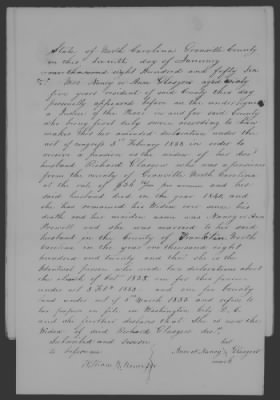 State of North Carolina Granville County
On this Seventh day of January
one thousand eight Hundred and fifty Six
Mrs Nancy or Ann Glasgow aged sixty
five years resident of said County this day
personally appeared before me the undersigned
a Justice of the Peace in and for said County
who being first duly sworn according to Law
makes this her amended declaration under the
act of congress 3d February 1853 in order to
receive a pension as the widow of her decd
husband Richard Glasgow who was a pensioner
from the county of Granville North Carolina
at the rate of $36 per annum and her
said husband died in the year 184
and she has remained his Widow ever since his
death and her maiden name was Nancy or Ann
and she was married to her said
husband in the County of Franklin North
Carolina in the year one thousand eight
hundred and twenty and that she is the
Identical person who made two declarations about
the of Octr 1855 one for his pension
under act 3 Feb 1853 and one for bounty
land under act 3d March 1855 and refers to
her papers on file in Washington City D. C.
and she further declares that she is now the
Widow of said Richard Glasgow decd
Subscribed and sworn her
to before me Ann or Nancy Glasgow
mark
William